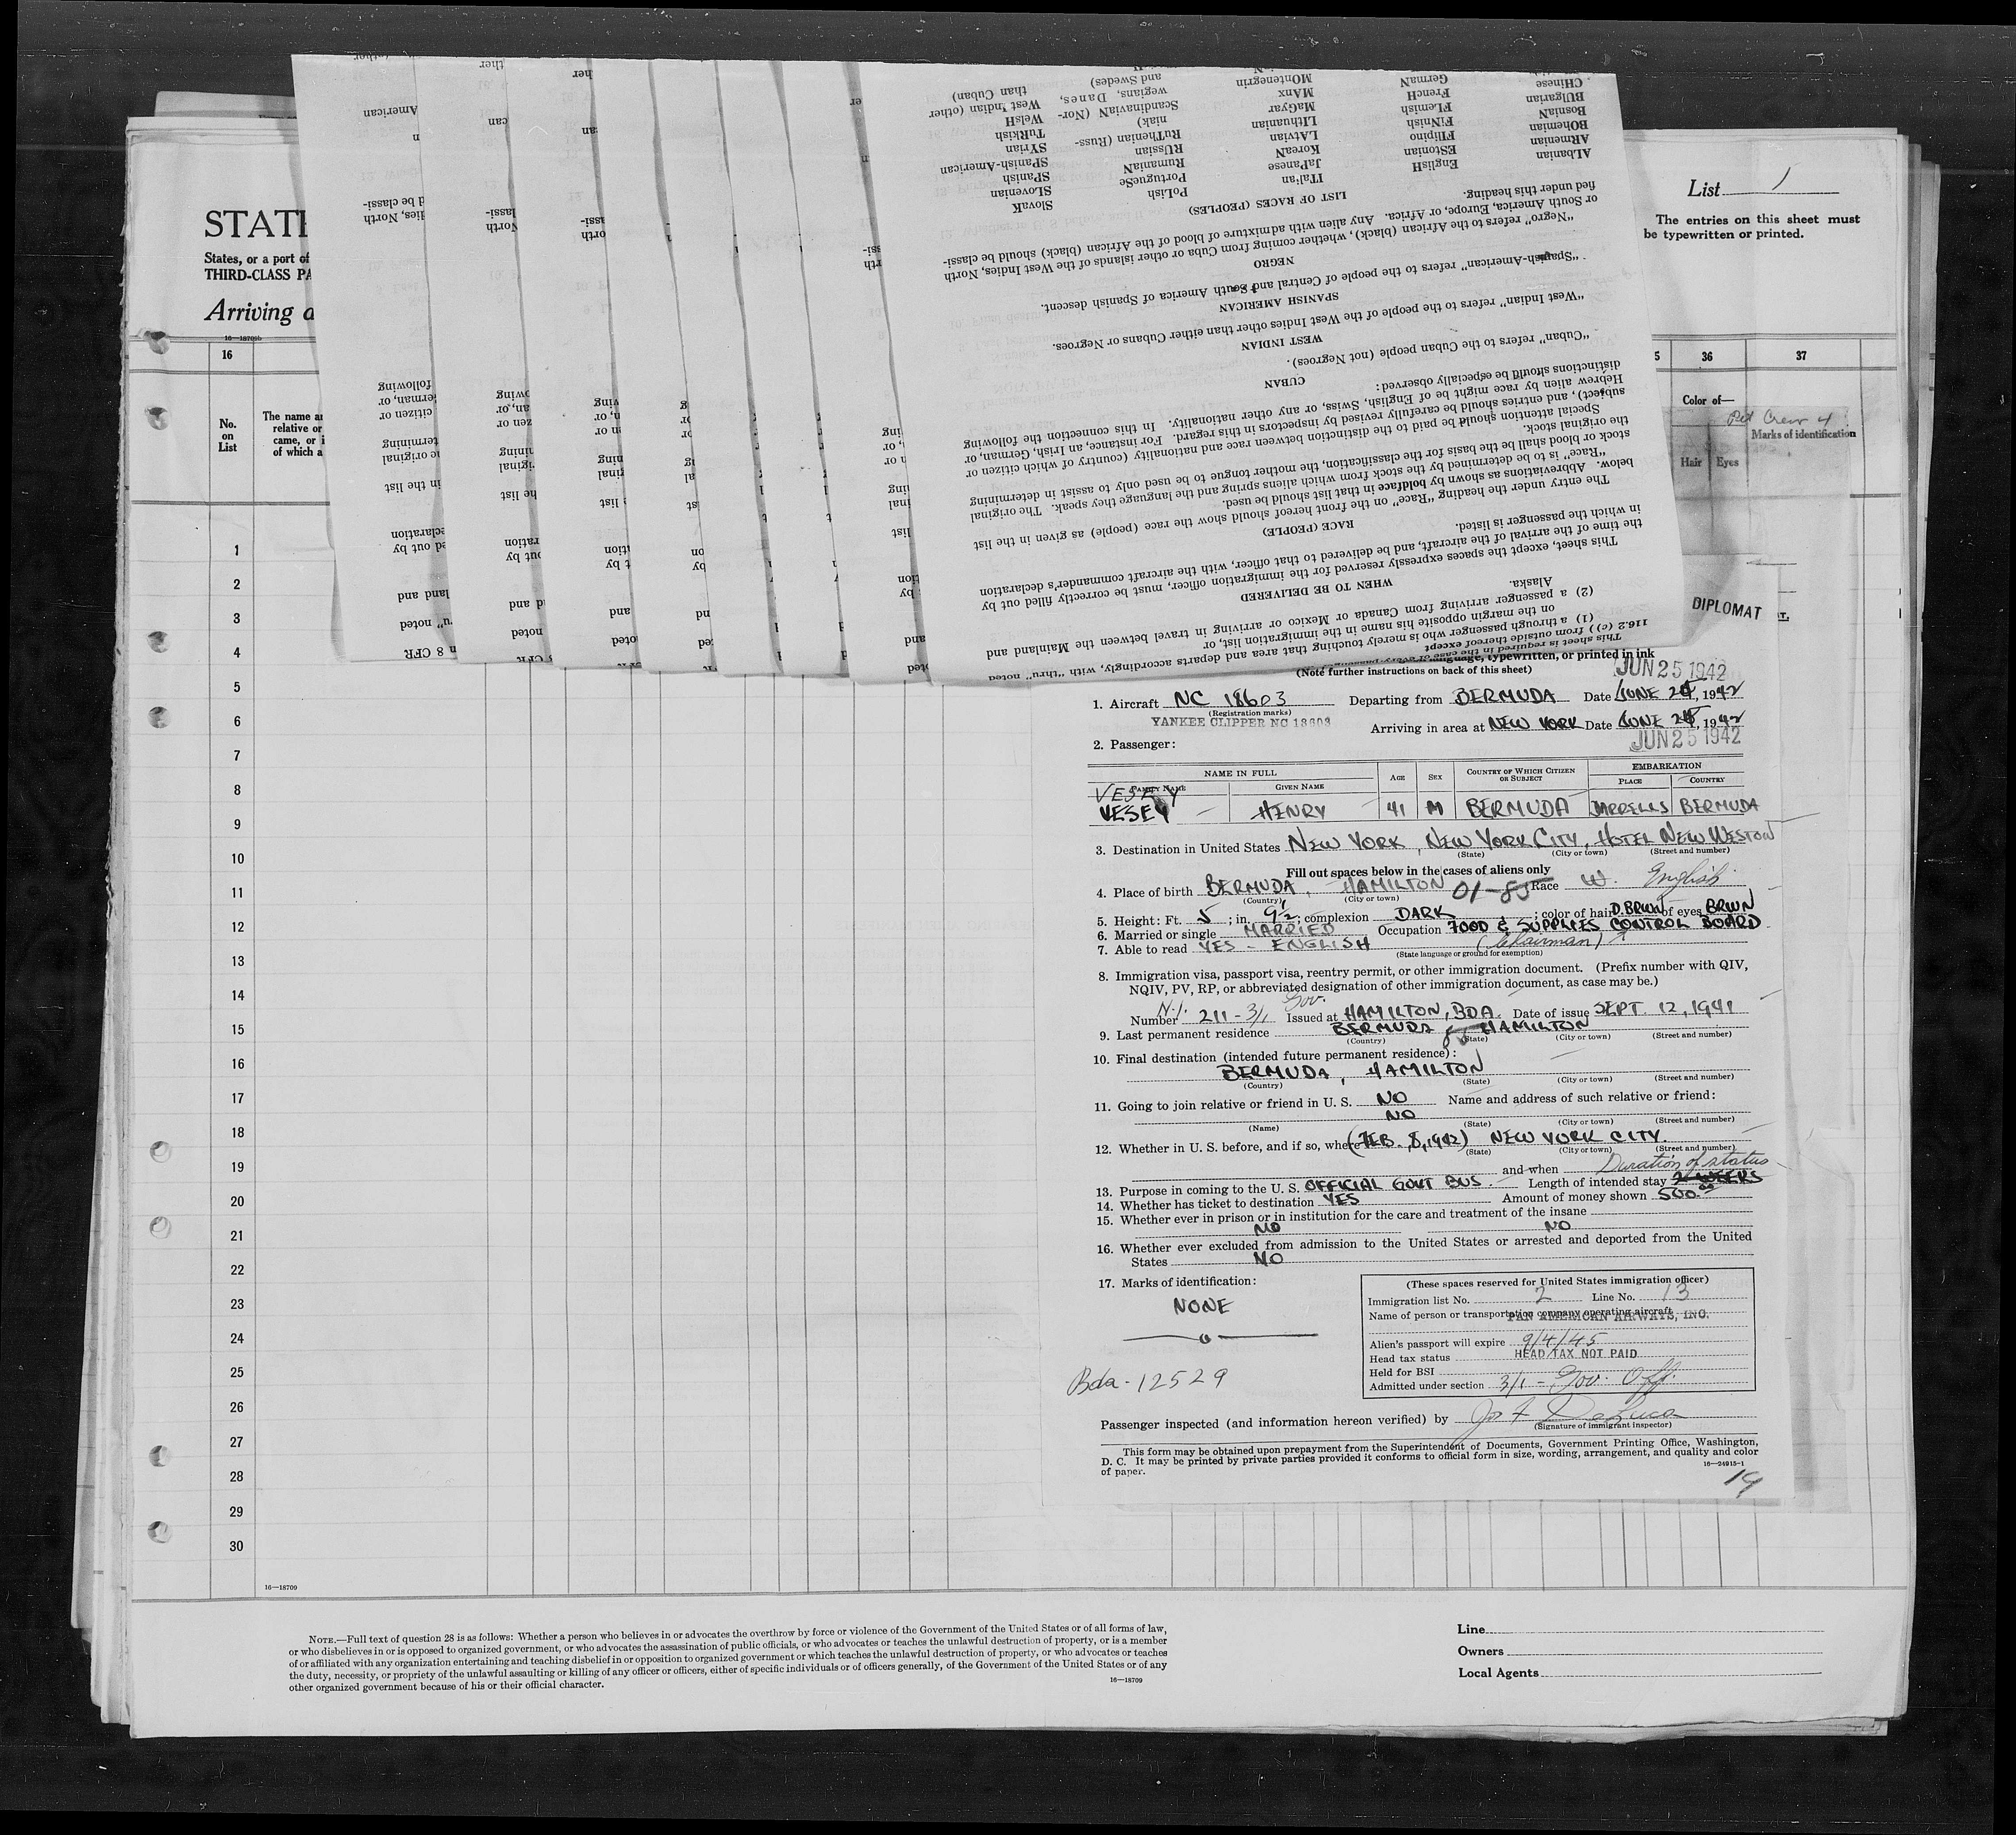 STATE
States, or a port of
THIRD-CLASS PA
Arriving a
List 1
The entries on this sheet must
be typewritten or printed.
16—18709b
16
36
37
No.
on
List
The name a
relative or
came, or i
of which a
Color of—
Hair Eyes
Marks of identification
DIPLOMAT
1
2
3
4
5
6
7
8
9
10
11
12
13
14
15
16
17
18
19
20
21
22
23
24
25
26
27
28
29
30
16—18709
This sheet is required in the case of every passenger
116.2 (c)) from outside thereof except
(1) a through passenger who is merely touching that area and departs accordingly, with "thru" noted
on the margin opposite his name in the immigration list, or
(2) a passenger arriving from Canada or Mexico or arriving in travel between the Mainland and
Alaska.
WHEN TO BE DELIVERED
This sheet, except the spaces expressly reserved for the immigration officer, must be correctly filled out by
the time of the arrival of the aircraft, and be delivered to that officer, with the aircraft commander's declaration
in which the passenger is listed.
RACE (PEOPLE)
The entry under the heading "Race" on the front hereof should show the race (people) as given in the list
below. Abbreviations as shown by boldface in that list should be used.
"Race" is to be determined by the stock from which aliens spring and the language they speak. The original
stock or blood shall be the basis for the classification, the mother tongue to be used only to assist in determining
the original stock.
Special attention should be paid to the distinction between race and nationality (country of which citizen or
subject), and entries should be carefully revised by inspectors in this regard. For instance, an Irish, German, or
Hebrew alien by race might be of English, Swiss, or any other nationality. In this connection the following
distinctions should be especially observed:
CUBAN
"Cuban" refers to the Cuban people (not Negroes).
WEST INDIAN
"West Indian" refers to the people of the West Indies other than either Cubans or Negroes.
SPANISH AMERICAN
"Spanish-American" refers to the people of Central and South America of Spanish descent.
NEGRO
"Negro" refers to the African (black), whether coming from Cuba or other islands of the West Indies, North
or South America, Europe, or Africa. Any alien with admixture of blood of the African (black) should be classi-
fied under this heading.
LIST OF RACES (PEOPLES)
ALbanian EnglisH ITal'an PoLish SlovaK
ARmenian EStonian JaPanese PortuguеSe SLovenian
BOhemian FIlipino KoreaN RumaniaN SPanish
BosniaN FiNish LAtvian RUssian SPanish-American
BULgarian FLemish LIthuanian RuThenian (Russ- SYrian
CHinese FrencH MaGyar niak) TuRkish
GermaN MAnx ScandinaviaN (Nor- WelsH
MOntenegrin wegians, Danes, West Indian (other
and Swedes) than Cuban)
(Note further instructions on back of this sheet)
JUN 25 1942
1. Aircraft NC 18603 Departing from BERMUDA Date JUNE 24, 1942
(Registration marks)
YANKEE CLIPPER NC 18603
Arriving in area at NEW YORK Date JUNE 24, 1942
JUN 25 1942
2. Passenger:
NAME IN FULL AGE SEX COUNTRY OF WHICH CITIZEN OR SUBJECT EMBARKATION
FAMILY NAME GIVEN NAME PLACE COUNTRY
VESEY
VESEY HENRY 41 M BERMUDA DARRELLS BERMUDA
3. Destination in United States NEW YORK, NEW YORK CITY, HOTEL NEW WESTON
(State) (City or town) (Street and number)
Fill out spaces below in the cases of aliens only
4. Place of birth BERMUDA, HAMILTON 01-85 Race W. English
(Country) (City or town)
5. Height: Ft. 5; in. 9½; complexion DARK; color of hair D.BRWN of eyes BRWN
6. Married or single MARRIED Occupation FOOD & SUPPLIES CONTROL BOARD
7. Able to read YES - ENGLISH (Chairman)
(State language or ground for exemption)
8. Immigration visa, passport visa, reentry permit, or other immigration document. (Prefix number with QIV,
NQIV, PV, RP, or abbreviated designation of other immigration document, as case may be.)
N.I. Gov.
Number 211 - 3/1 Issued at HAMILTON, BDA. Date of issue SEPT. 12, 1941
9. Last permanent residence BERMUDA HAMILTON
(Country) (State) (City or town) (Street and number)
10. Final destination (intended future permanent residence):
BERMUDA, HAMILTON
(Country) (State) (City or town) (Street and number)
11. Going to join relative or friend in U. S. NO Name and address of such relative or friend:
NO
(Name) (State) (City or town) (Street and number)
12. Whether in U. S. before, and if so, where (FEB. 8, 1942) NEW YORK CITY.
(State) (City or town) (Street and number)
and when Duration of status
13. Purpose in coming to the U. S. OFFICIAL GOVT BUS. Length of intended stay 2 WEEKS
14. Whether has ticket to destination YES Amount of money shown 500.00
15. Whether ever in prison or in institution for the care and treatment of the insane
NO NO
16. Whether ever excluded from admission to the United States or arrested and deported from the United
States NO
17. Marks of identification:
NONE
(These spaces reserved for United States immigration officer)
Immigration list No. 2 Line No. 13
Name of person or transportation company operating aircraft
PAN AMERICAN AIRWAYS, INC.
Alien's passport will expire 9/4/45
Head tax status HEAD TAX NOT PAID
Held for BSI
Admitted under section 3/1 - Gov. Off.
Bda - 12529
Passenger inspected (and information hereon verified) by Jos F DeLuca
(Signature of immigrant inspector)
This form may be obtained upon prepayment from the Superintendent of Documents, Government Printing Office, Washington,
D. C. It may be printed by private parties provided it conforms to official form in size, wording, arrangement, and quality and color
of paper.
16—24915-1
19
NOTE.—Full text of question 28 is as follows: Whether a person who believes in or advocates the overthrow by force or violence of the Government of the United States or of all forms of law,
or who disbelieves in or is opposed to organized government, or who advocates the assassination of public officials, or who advocates or teaches the unlawful destruction of property, or is a member
of or affiliated with any organization entertaining and teaching disbelief in or opposition to organized government or which teaches the unlawful destruction of property, or who advocates or teaches
the duty, necessity, or propriety of the unlawful assaulting or killing of any officer or officers, either of specific individuals or of officers generally, of the Government of the United States or of any
other organized government because of his or their official character.
16—18709
Line
Owners
Local Agents